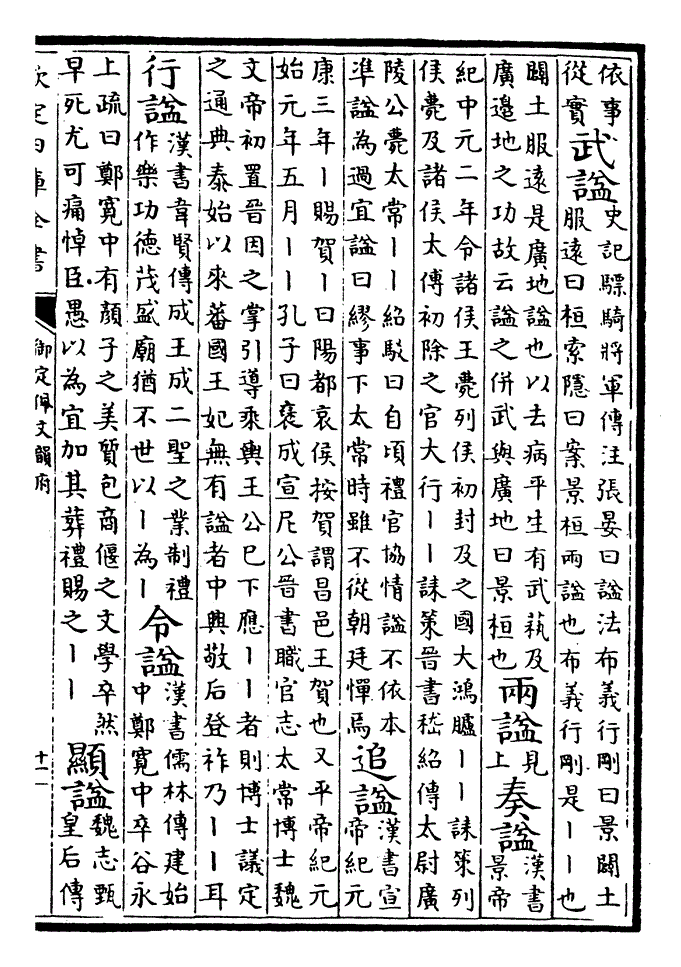 依事
從實
武諡
史記驃騎將軍傳注張晏曰諡法布義行剛曰景闢土
服遠曰桓索隱曰案景桓兩諡也布義行剛是丨丨也
闢土服遠是廣地諡也以去病平生有武藝及
廣邊地之功故云諡之併武與廣地曰景桓也
兩諡
見
上
奏諡
漢書
景帝
紀中元二年令諸侯王薨列侯初封及之國大鴻臚丨丨誄策列
侯薨及諸侯太傅初除之官大行丨丨誄策晉書嵇紹傳太尉廣
陵公薨太常丨丨紹駁曰自頃禮官協情諡不依本
準諡為過宜諡曰繆事下太常時雖不從朝廷憚焉
追諡
漢書宣
帝紀元
康三年丨賜賀丨曰陽都哀侯按賀謂昌邑王賀也又平帝紀元
始元年五月丨丨孔子曰襃成宣尼公晉書職官志太常博士魏
文帝初置晉因之掌引導乘輿王公巳下應丨丨者則博士議定
之通典泰始以來蕃國王妃無有諡者中興敬后登祚乃丨丨耳
行諡
漢書韋賢傳成王成二聖之業制禮
作樂功德茂盛廟猶不世以丨為丨
令諡
漢書儒林傳建始
中鄭寬中卒谷永
上疏曰鄭寬中有顏子之美質包商偃之文學卒然
早死尤可痛悼臣愚以為宜加其葬禮賜之丨丨
顯諡
魏志甄
皇后傳
欽定四庫全書
御定佩文韻府